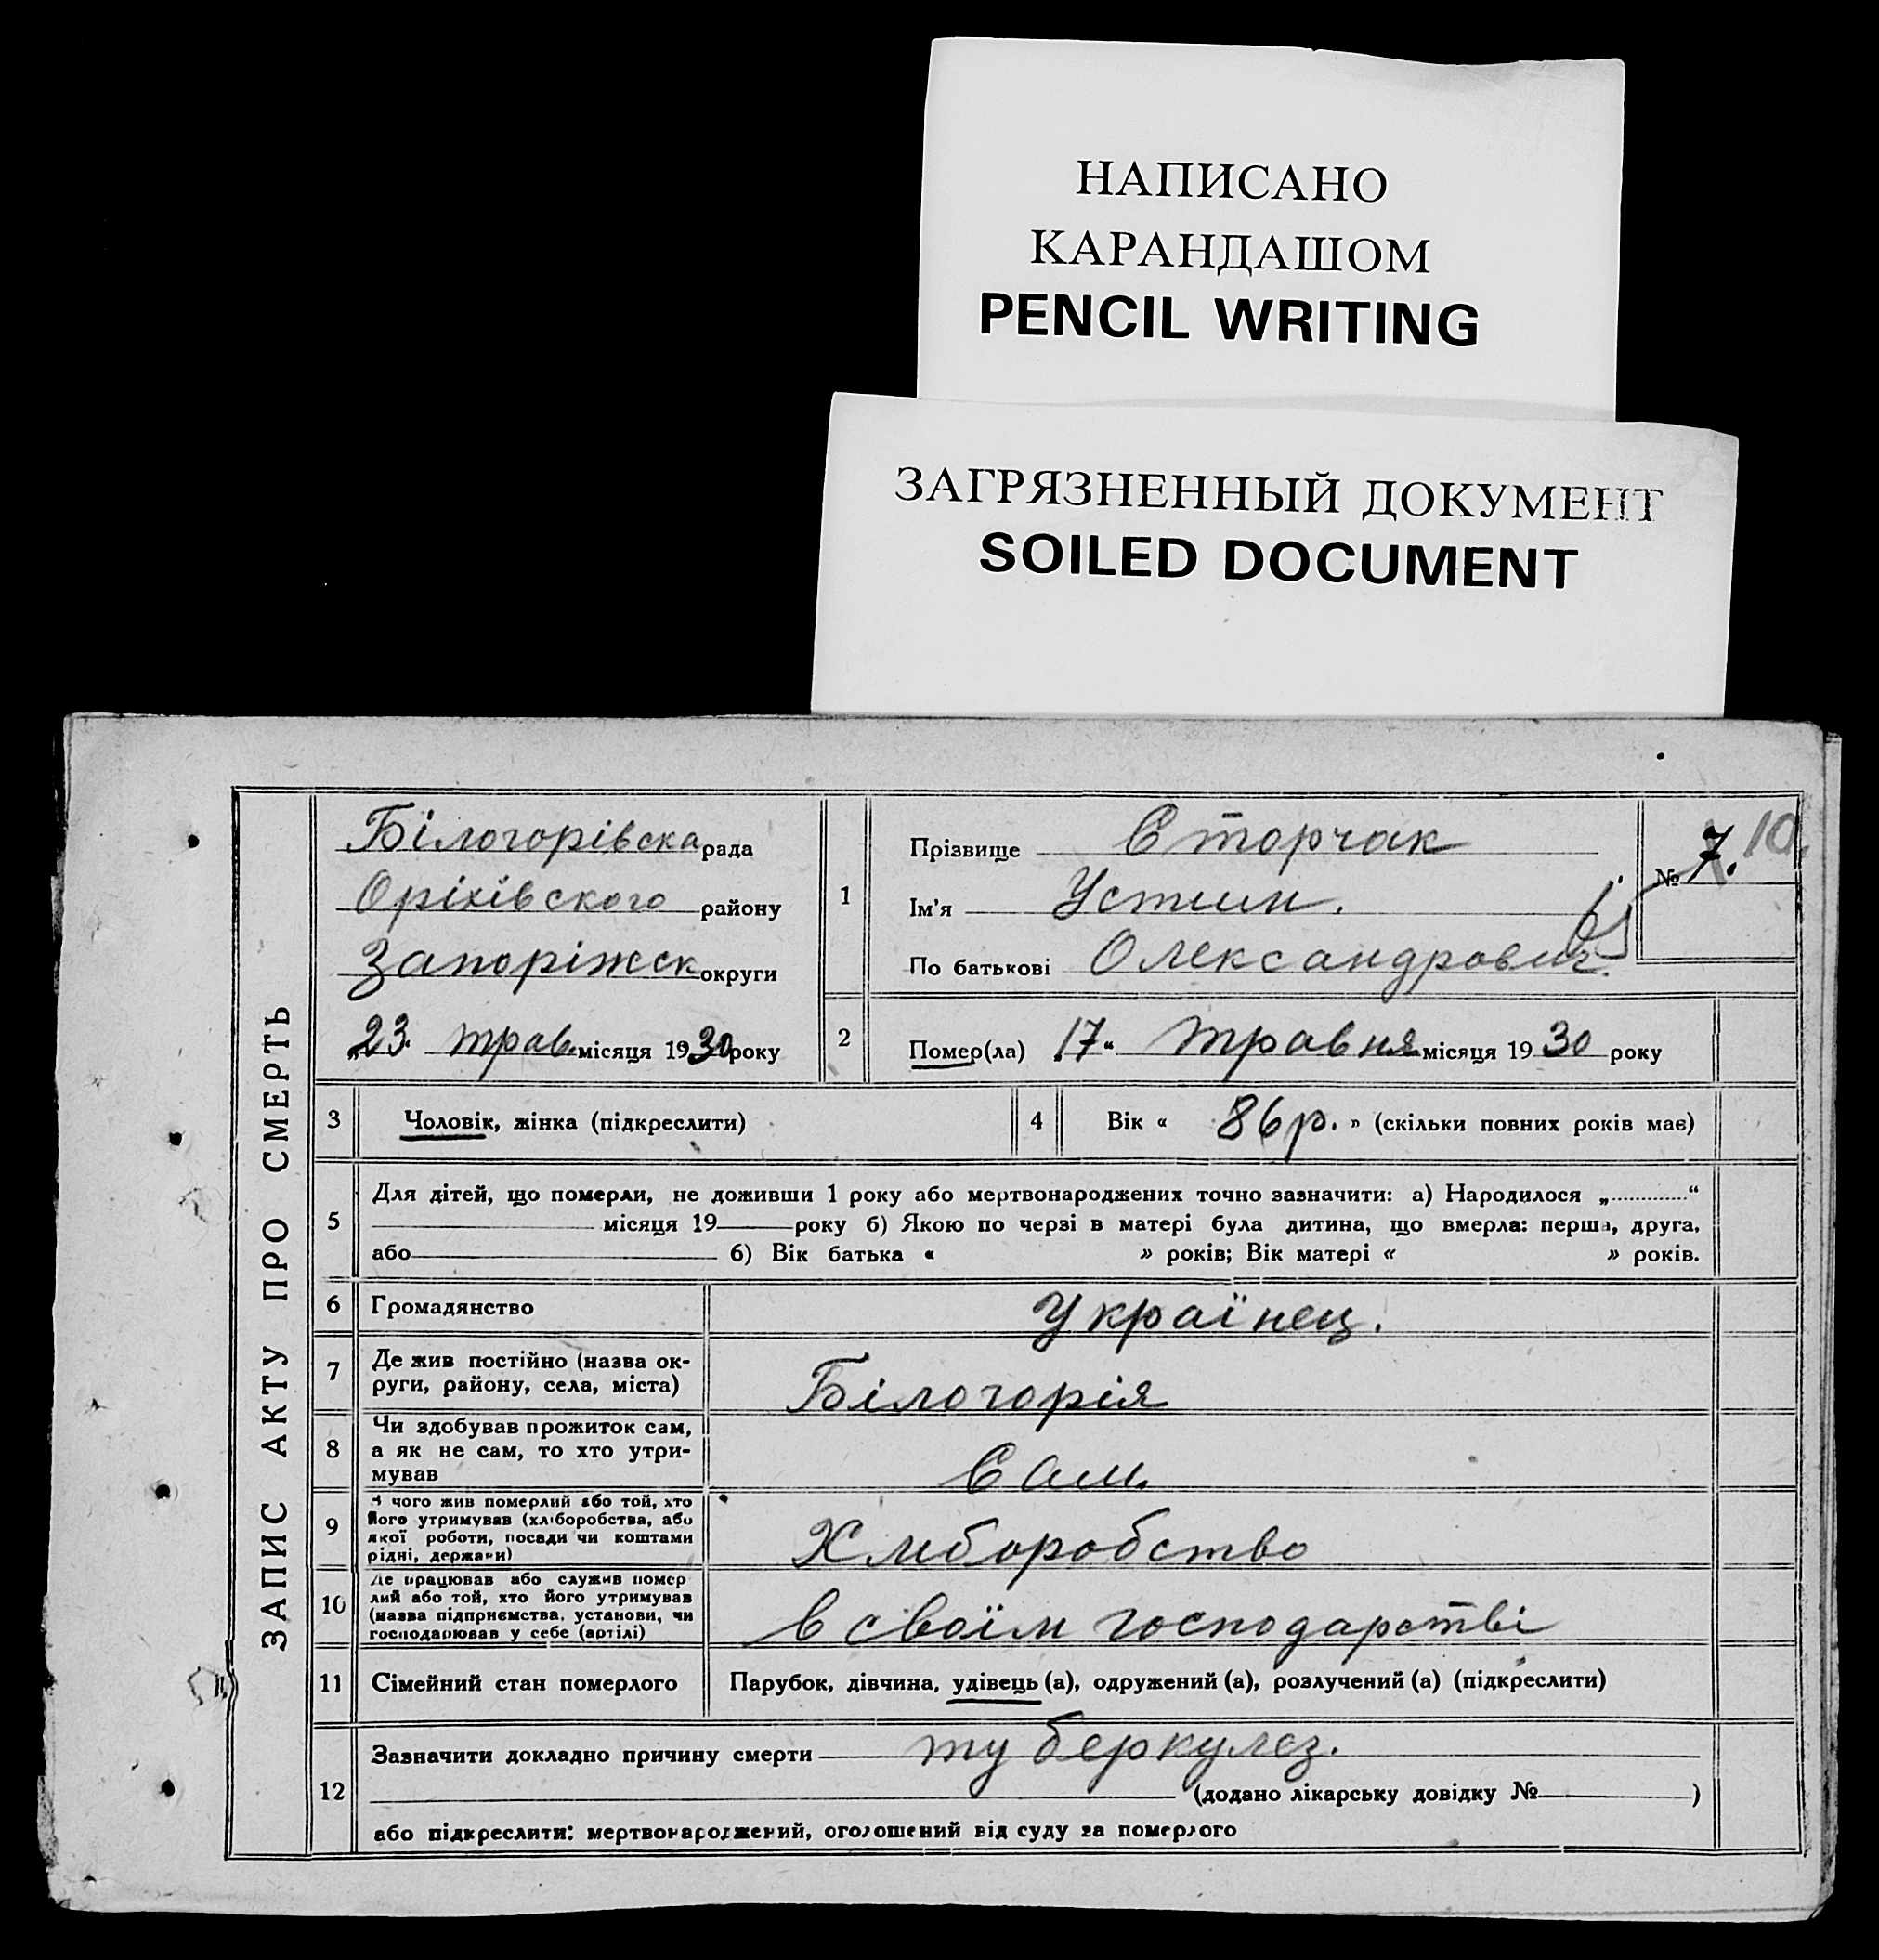 НАПИСАНО
КАРАНДАШОМ
PENCIL WRITING
ЗАГРЯЗНЕННЫЙ ДОКУМЕНТ
SOILED DOCUMENT
ЗАПИС АКТУ ПРО СМЕРТЬ
Білогорівска рада
Оріхівского району
Запоріжск округи
„23. трав. місяця 1930 року
1
Прізвище Сторчак
Ім'я Устин.
По батькові Олександрович.
№ 7. 10.
2
Помер(ла) „17“ травня місяця 1930 року
3 Чоловік, жінка (підкреслити)
4 Вік « 86 р. » (скільки повних років має)
5
Для дітей, що померли, не доживши 1 року або мертвонароджених точно зазначити: а) Народилося „..............“
місяця 19 року б) Якою по черзі в матері була дитина, що вмерла: перша, друга,
або б) Вік батька « » років; Вік матері « » років.
6 Громадянство Українец.
7 Де жив постійно (назва ок-
руги, району, села, міста)
Білогорія
8 Чи здобував прожиток сам,
а як не сам, то хто утри-
мував
Сам.
9 З чого жив померлий або той, хто
його утримував (хліборобства, або
якої роботи, посади чи коштами
рідні, держави)
Хлиборобство
10 Де працював або служив помер
лий або той, хто його утримував
(назва підприємства, установи, чи
господарював у себе (артілі)
в своїм господарстві
11 Сімейний стан померлого Парубок, дівчина, удівець (а), одружений (а), розлучений (а) (підкреслити)
12 Зазначити докладно причину смерти туберкулез.
(додано лікарську довідку № )
або підкреслити: мертвонароджений, оголошений від суду за померлого